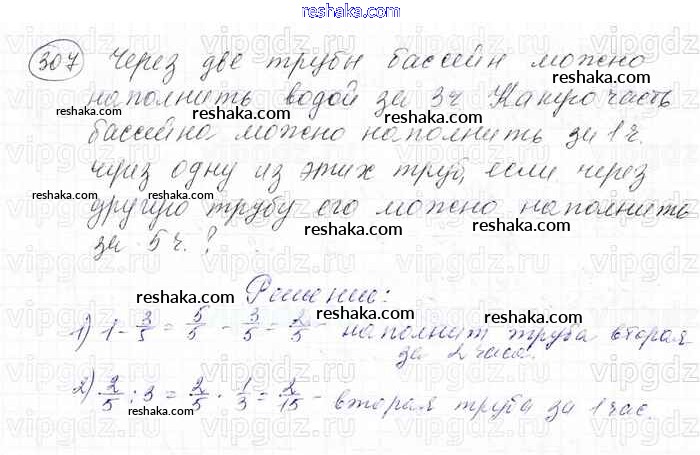 reshaka.com
307 Через две трубы бассейн можно
reshaka.com
наполнить водой за 3ч Какую часть
reshaka.com
бассейна можно наполнить за 1ч.
через одну из этих труб, если через
reshaka.com reshaka.com
другую трубу его можно наполнить
за 5ч.?
reshaka.com reshaka.com
Решение:
reshaka.com reshaka.com
1) 1 - 3/5 = 5/5 - 3/5 = 2/5 - наполнит труба вторая
за 2 часа.
reshaka.com
2) 2/5 : 3 = 2/5 · 1/3 = 2/15 - вторая труба за 1 час.
reshaka.com reshaka.com
reshaka.com